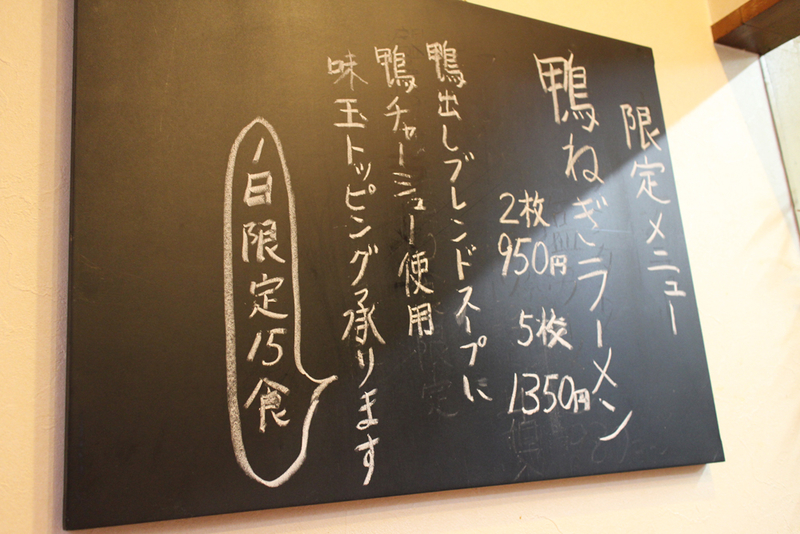 限定メニュー
鴨ねぎラーメン
2枚
950円
5枚
1350円
鴨出しブレンドスープに
鴨チャーシュー使用
味玉トッピング承ります
1日限定15食